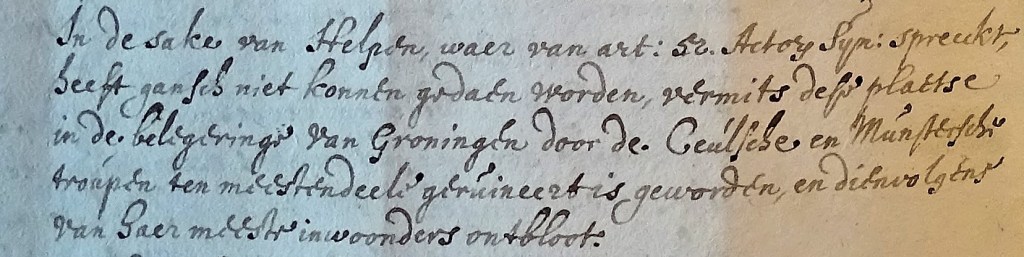 In de sake van Helpen, waer van art: 52. Actor Syn: spreeckt,
heeft gansch niet konnen gedaen worden, vermits dese plaetse
in de belegeringe van Groningen door de Ceulsche en Munstersche
troupen ten meestendeele geruineert is geworden, en dienvolgens
van haer meeste inwoonders ontbloot.